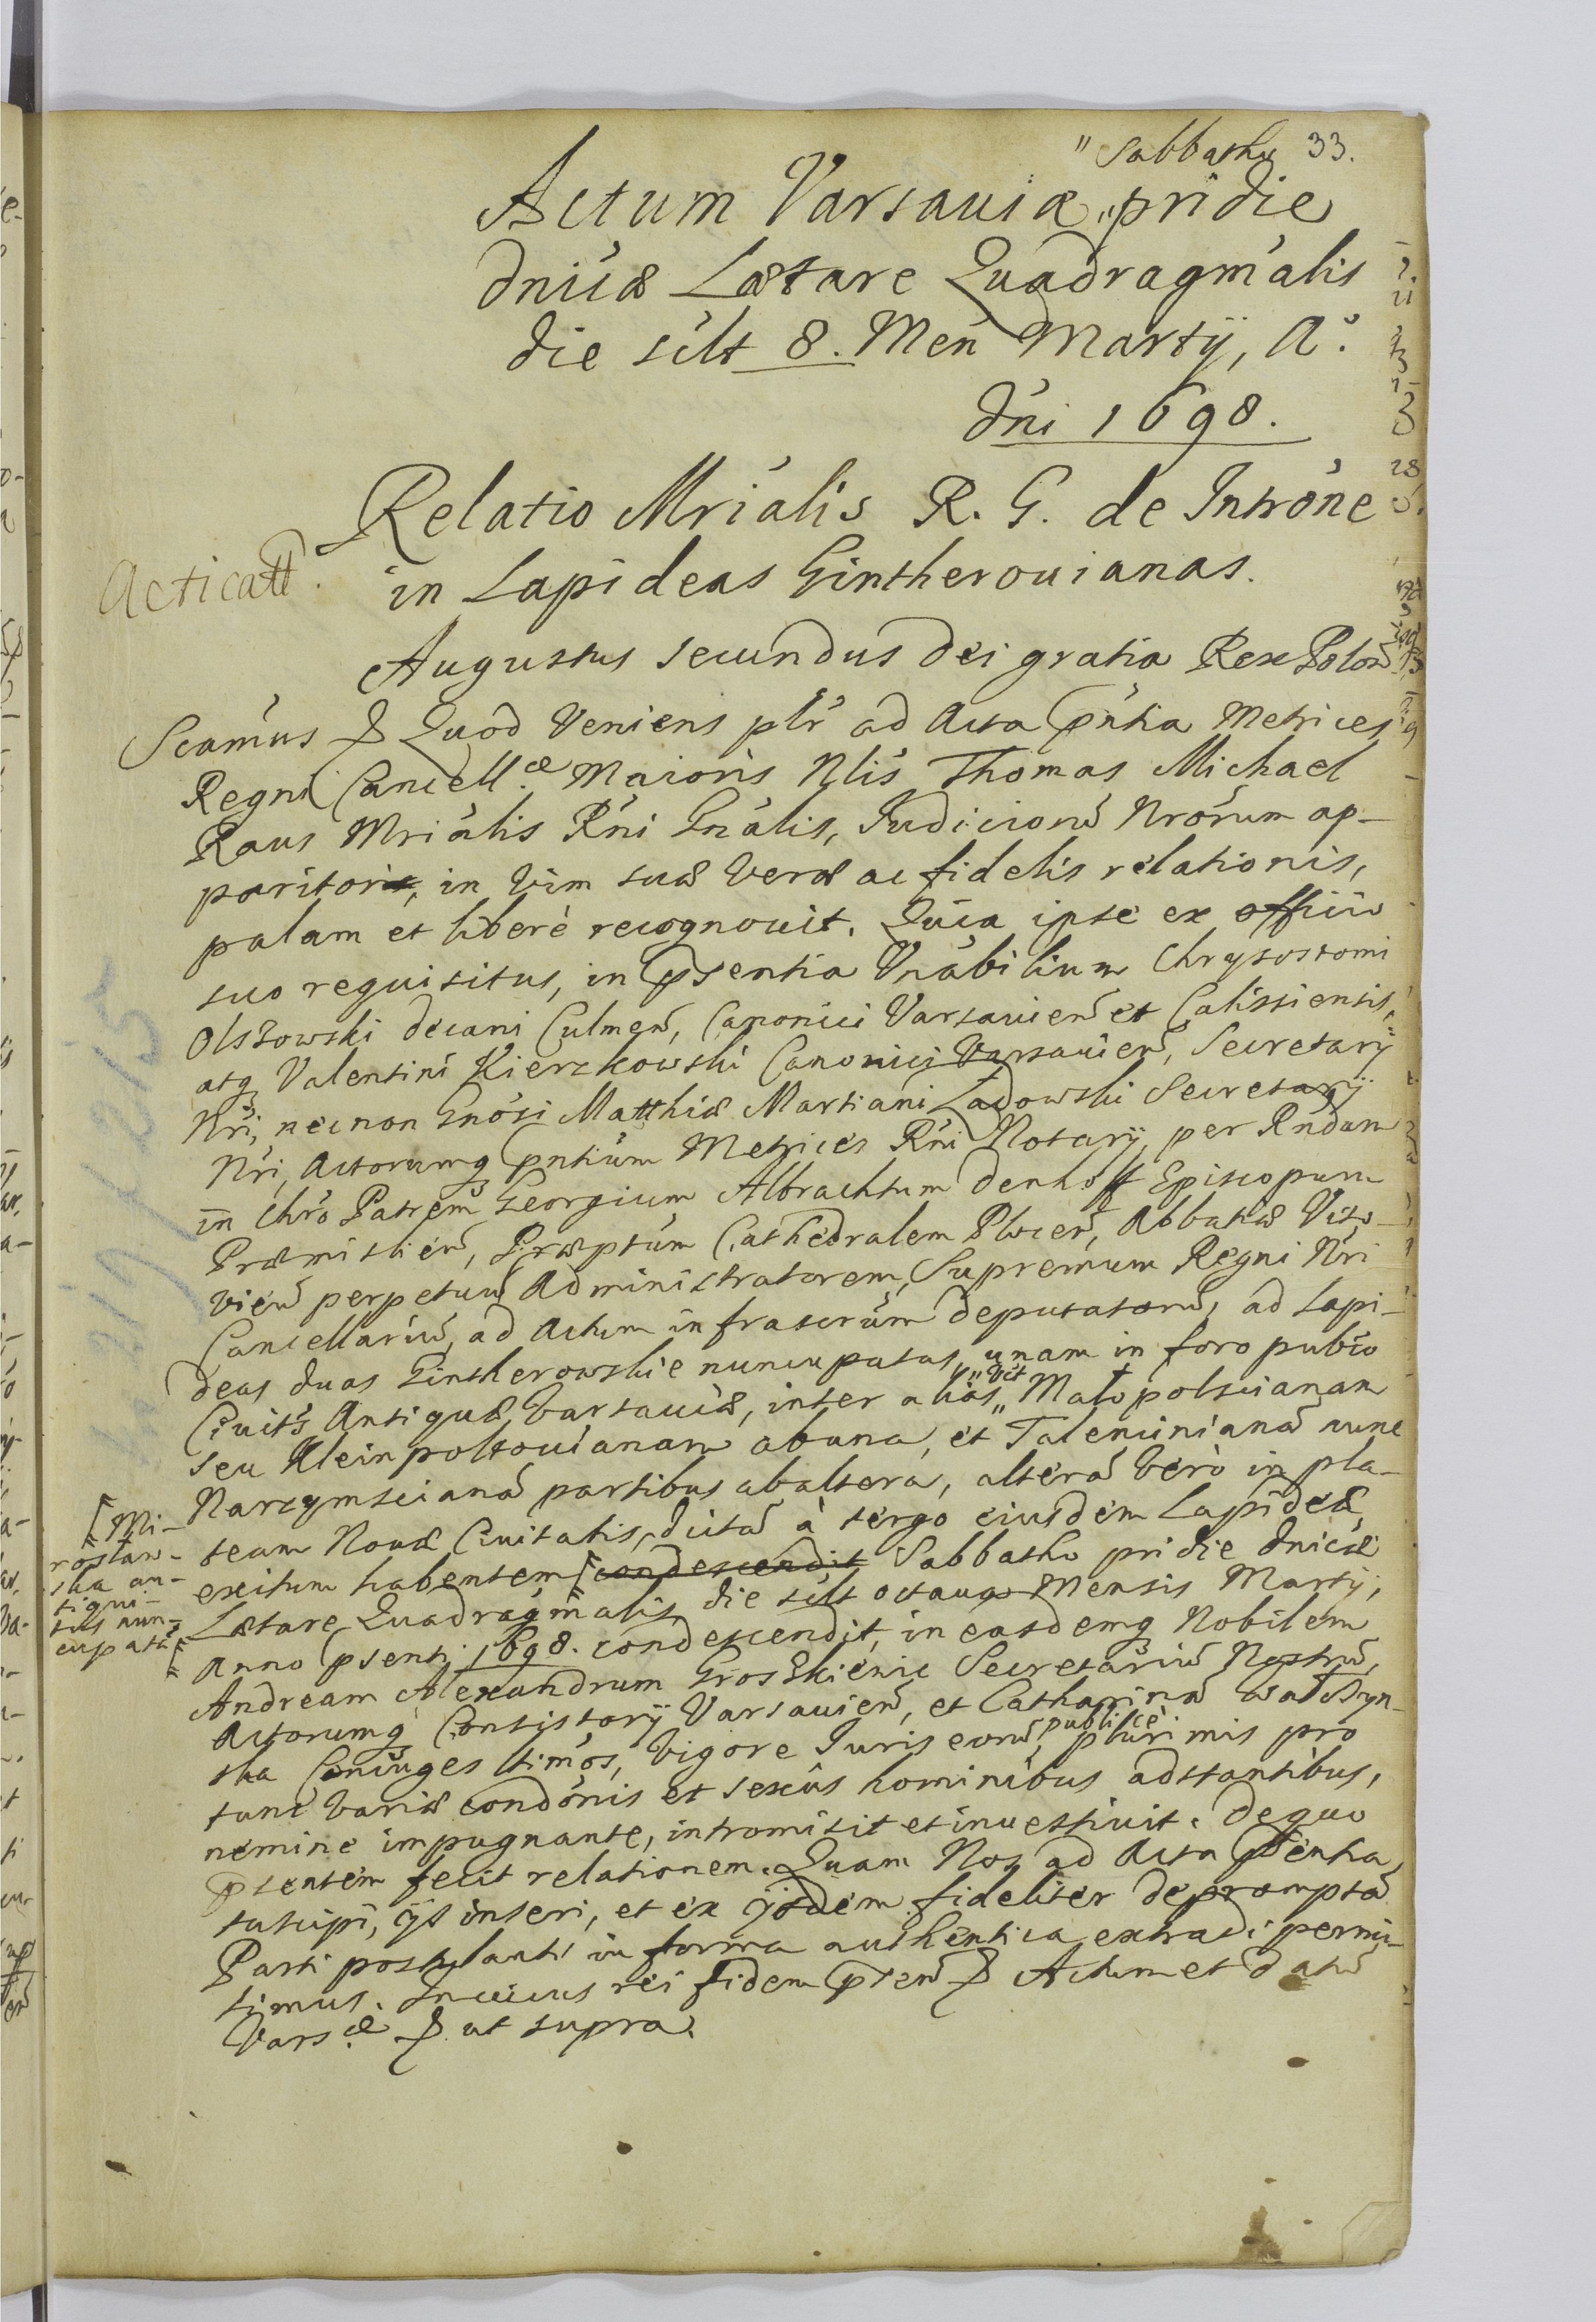 "Sabbatho 33.
Actum Varsauiæ "pridie
Dnicæ Lætare Quadragmalis
die sclt 8. Men Martij, Aº.
Dni 1698.
Relatio Mrialis R. G. de Introne
in Lapideas Gintherouianas.
Acticatt.
Augustus Secundus Dei gratia Rex Polon
Scamus & Quod Veniens plr ad Acta pntia Metrices
Regni Cancell.æ Maioris Nlis Thomas Michael
Raus Mrialis Rni Gnalis, Judiciorum Nrorum ap-
paritor, in vim suæ veræ ac fidelis relationis,
palam et liberè recognouit. Quia ipse ex officio
suo requisitus, in psentia Vnabilium Chrysostomi
Olszowski Decani Culmen, Canonici Varsauien et Calissiensis,
atq Valentini Kierzkowski Canonici Varsauien, Secretarij
Nri, necnon Gnosi Matthiæ Martiani Ladowski Secretarij
Nri, Actorumq pntium Metrices Rni Notarij, per Rndum
in Chro Patrem Georgium Albrachtum Denhoff Episcopum
Præmislien, Præptum Cathedralem Plocen, Abbatiæ Visto-
vien perpetuum Administratorem, Supremum Regni Nri
Cancellarium, ad Actum infrascrum deputatorum, ad Lapi-
deas duas Gintherowskie nuncupatas, unam in foro publco
Ciuitis Antiquæ Varsauiæ, inter alias "vlt" Małopolscianam
seu Kleinpoltouianam ab una, et Taleninianam nunc
Narzymscianam partibus ab altera, alteram verò in pla-
team Nouæ Ciuitatis, dictam à tergo eiusdem Lapideæ,
exitum habentem [condescendit Sabbatho pridie Dnicæ
[Mi-
rostaw-
ska an-
tiqui-
tus nun-
cupatã [
Lætare Quadragmalis, die sclt octaua Mensis Martij,
Anno psenti 1698. condescendit, in easdemq Nobilem
Andream Alexandrum Groszkienic Secretarium Nostrum,
Actorumq Consistorij Varsauien, et Catharinam
ska Coniuges ltimos, vigore Juris eorum, publicè plurimis pro
tunc variæ condonis et sexûs hominibus adstantibus,
nemine impugnante, intromisit et inuestiuit. De quo
psentem fecit relationem. Quam Nos ad Acta psentia
suscipi, ijs inseri, et ex ijsdem fideliter depromptam
Parti postulanti in forma authentica extradi permi-
simus. In cuius rei fidem psen & Actum et datum
Vars.æ & ut supra.